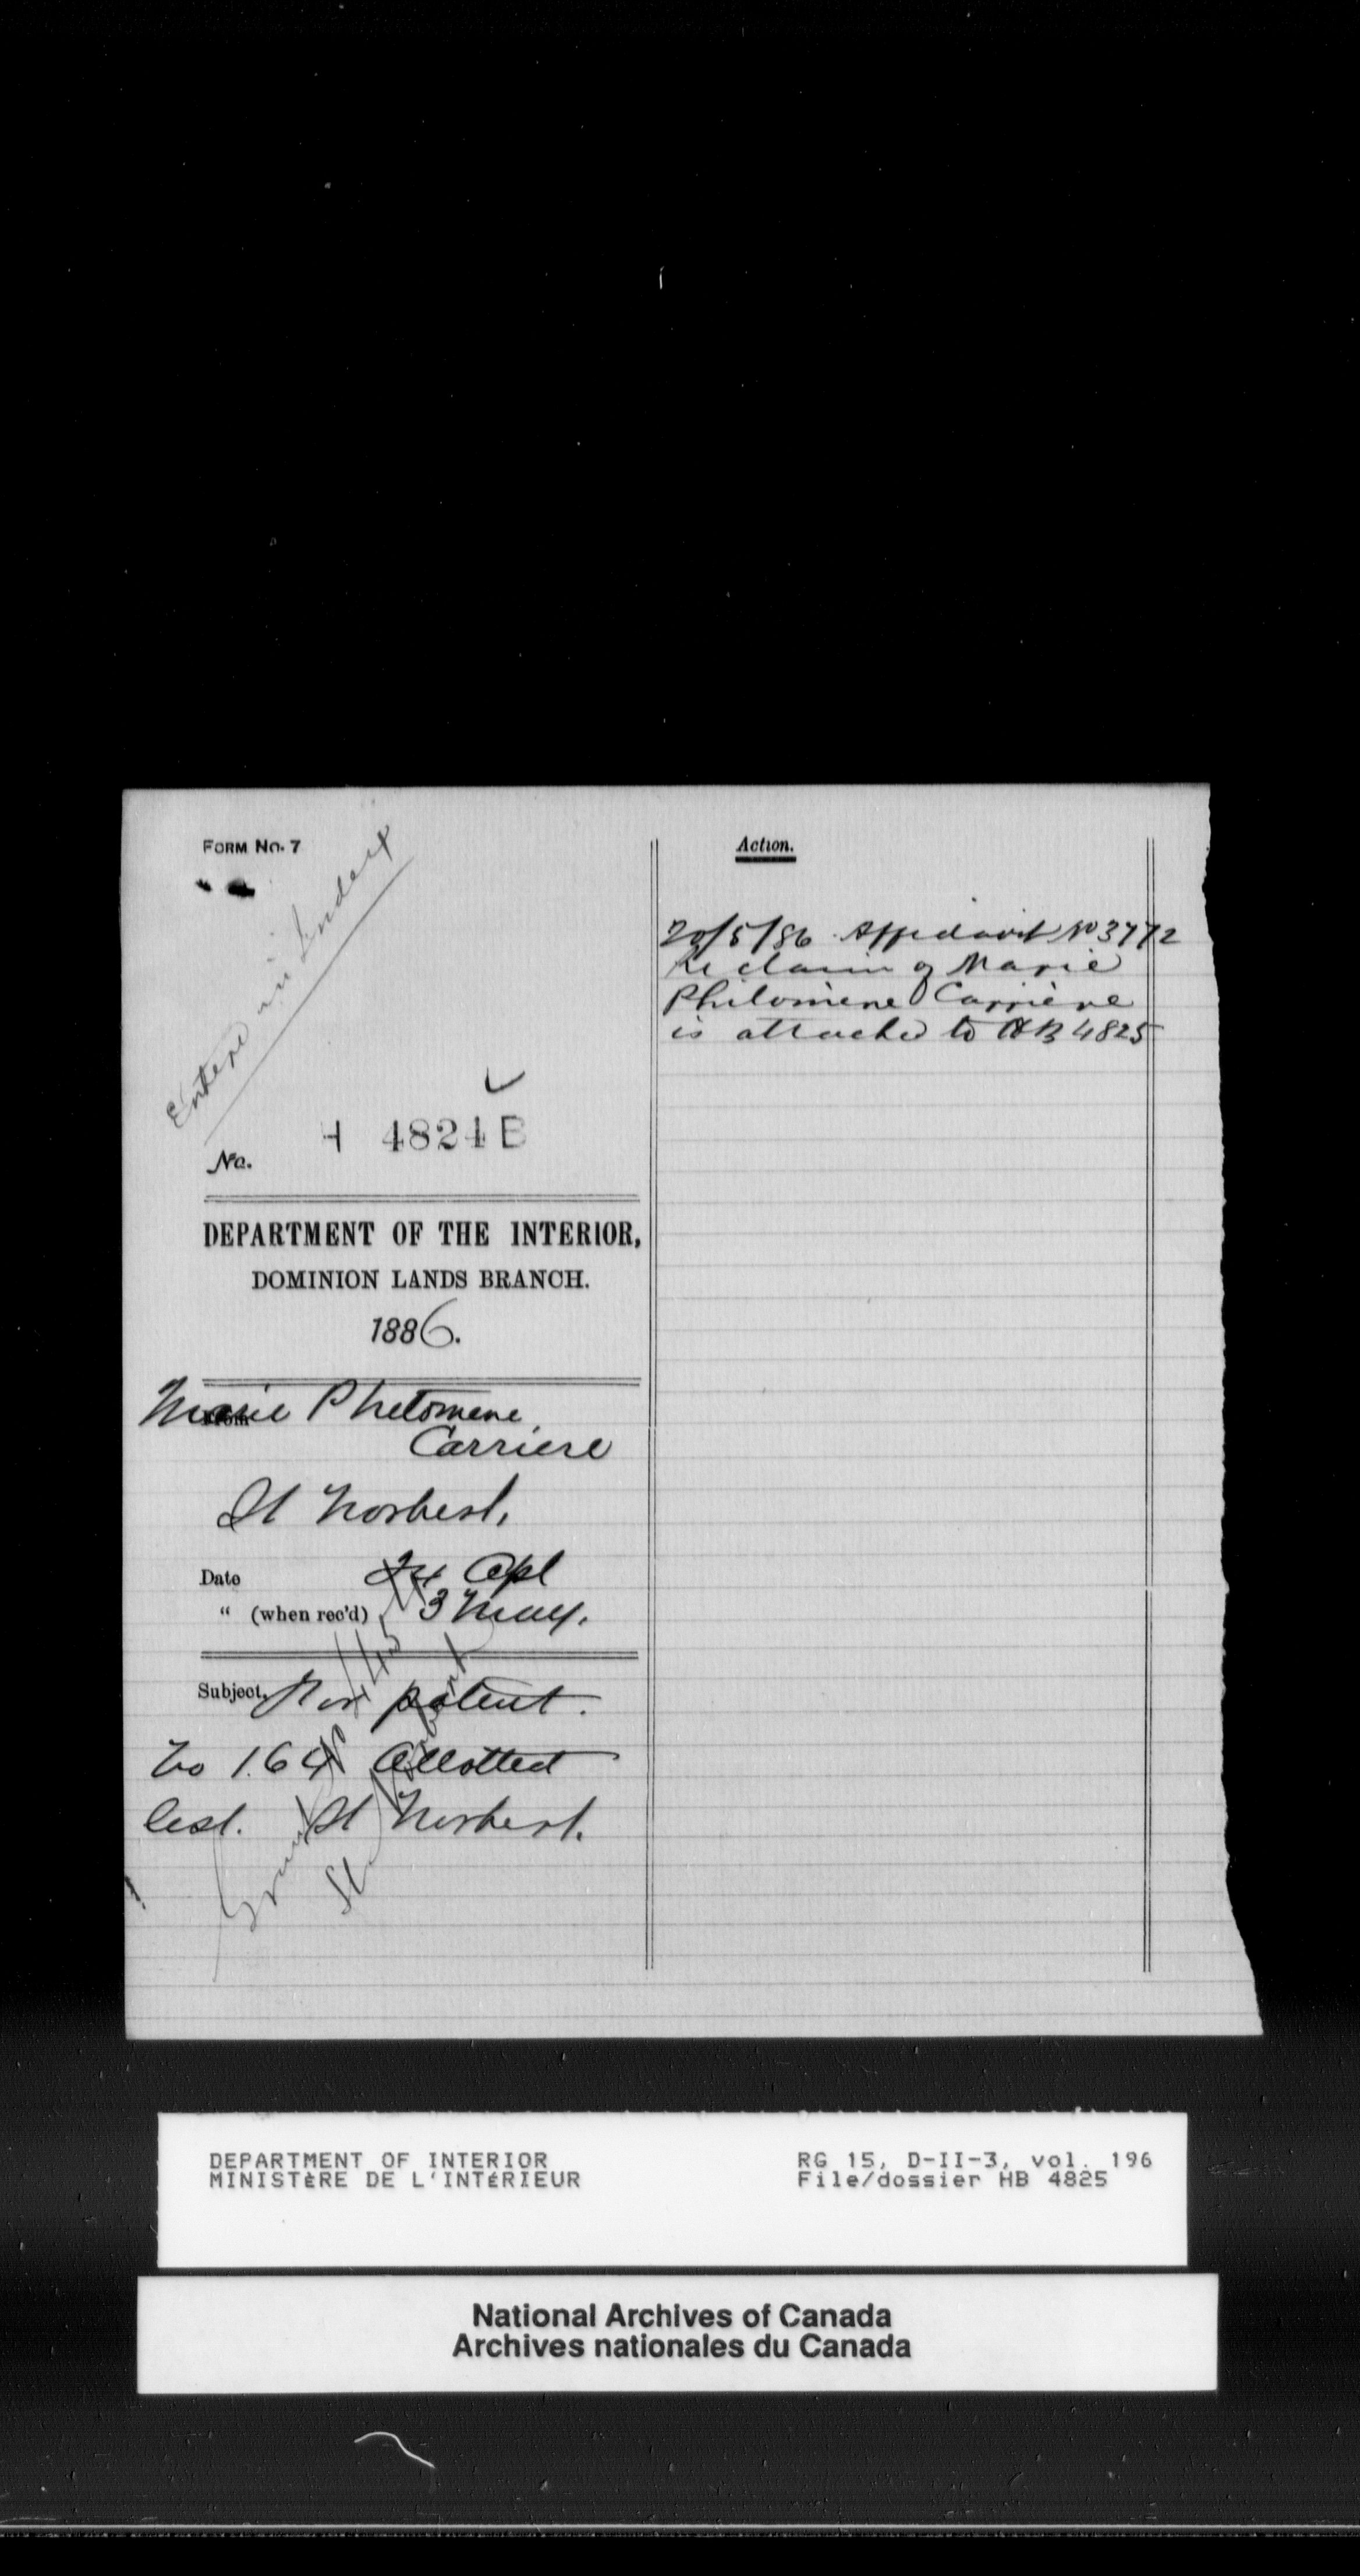 FORM No. 7
Entered in Index
No. H 4824 B
DEPARTMENT OF THE INTERIOR,
DOMINION LANDS BRANCH.
1886.
From Marie Philomene
Carriere
St Norbert,
Date 24 Apl
" (when rec'd) 3 May.
Subject, For patent.
No 164 Allotted
List. St Norbert.
Action.
20/5/86 Affidavit No 3772
Re claim of Marie
Philomene Carriere
is attached to HB 4825
DEPARTMENT OF INTERIOR
MINISTÈRE DE L'INTÉRIEUR
RG 15, D-II-3, vol. 196
File/dossier HB 4825
National Archives of Canada
Archives nationales du Canada